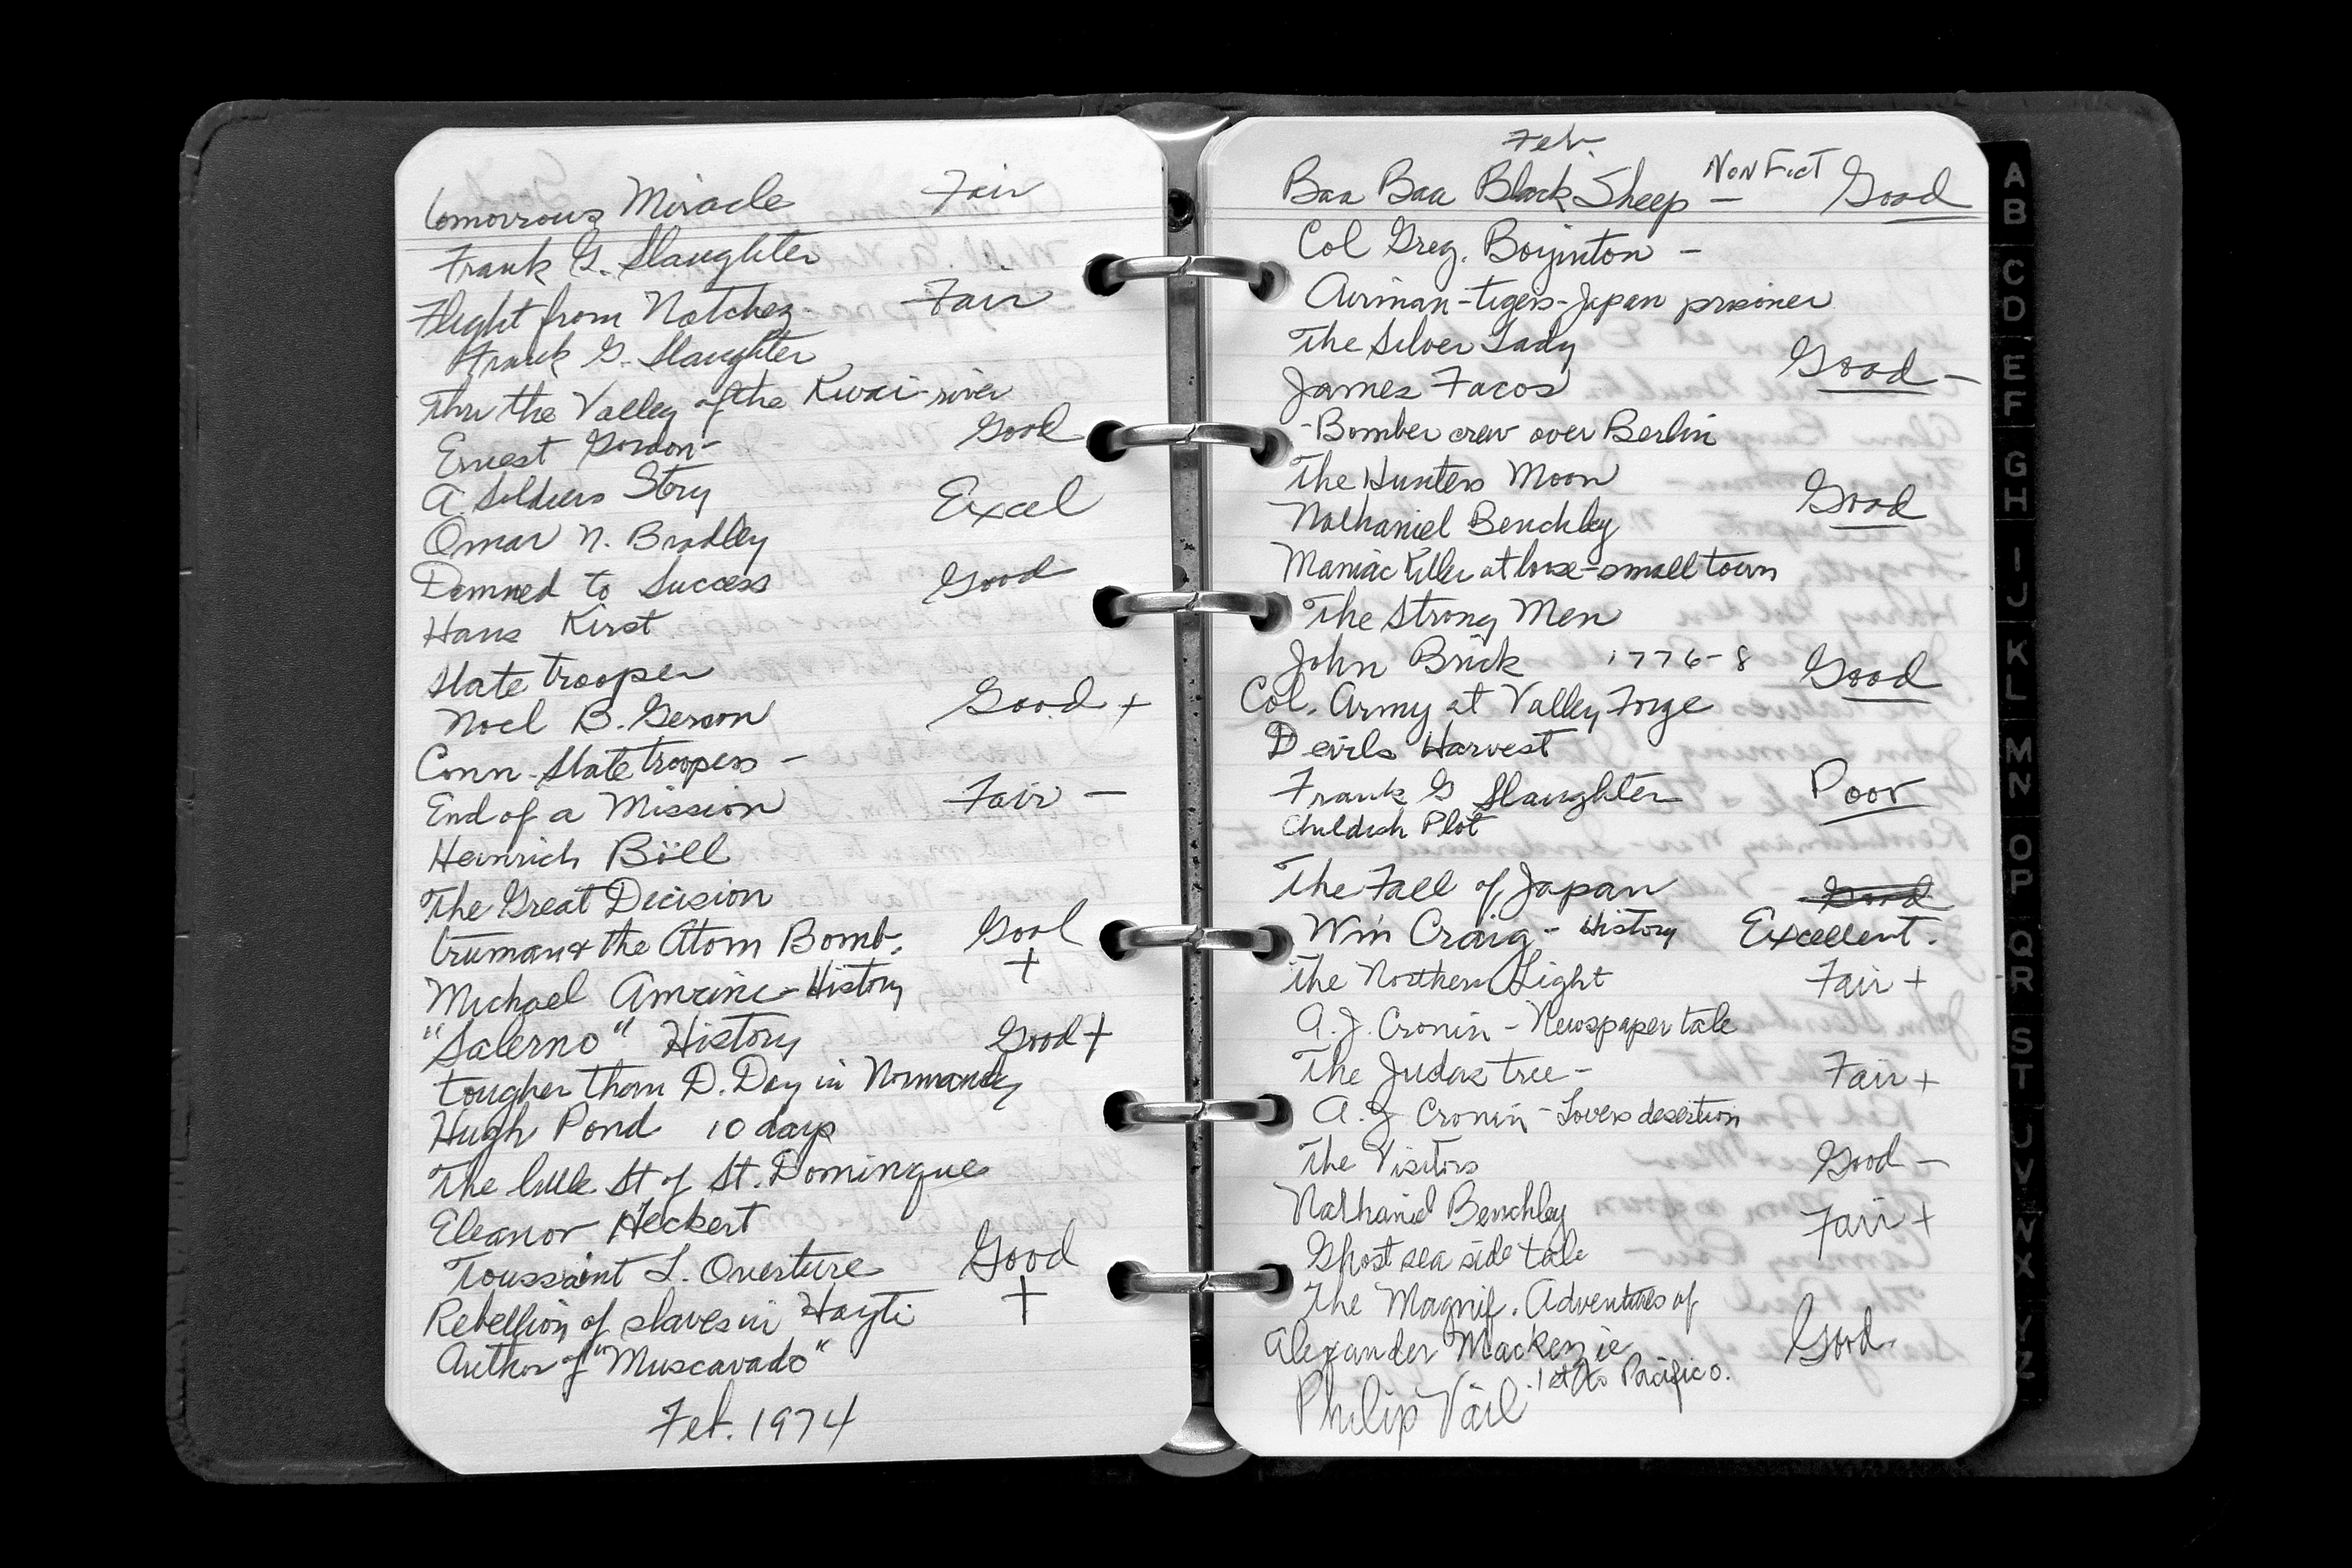 Tomorrows Miracle Fair
Frank G. Slaughter
Flight from Natchez. Fair
Frank G. Slaughter
Thru the Valley of the Kwai-river
Ernest Gordon- Good
A Soldiers Story Excel
Omar N. Bradley
Damned to Success Good
Hans Kirst
State trooper
Noel B. Gerson Good +
Conn-State troopers -
End of a Mission Fair -
Heinrich Böll
The Great Decision
Truman & the Atom Bomb. Good
Michael Amrine-History +
"Salerno" History Good +
tougher than D.Day in Normandy
Hugh Pond 10 days
The little St of St. Domingue
Eleanor Heckert
Toussaint L. Overture Good
Rebellion of slaves in Hayti +
Author of "Muscavado"
Feb. 1974
Feb.
Baa Baa Black Sheep - Non Fict Good
Col Greg. Boyinton -
Airman-tigers-Japan prisoner
The Silver Lady Good -
James Facos
-Bomber crew over Berlin
The Hunters Moon Good
Nathaniel Benchley
Maniac Killer at loose-small town
The Strong Men
John Brick 1776-8 Good
Col. Army at Valley Forge
Devils Harvest
Frank G Slaughter Poor
Childish Plot
The Fall of Japan Good
Wm Craig - History Excellent.
The Northern Light Fair +
A. J. Cronin - Newspaper tale
The Judas tree - Fair +
A. J Cronin - Lovers desertion
The Visitors Good -
Nathaniel Benchley Fair +
Ghost sea side tale
The Magnif. Adventures of
Alexander Mackenzie Good
1st to Pacific o.
Philip Vail